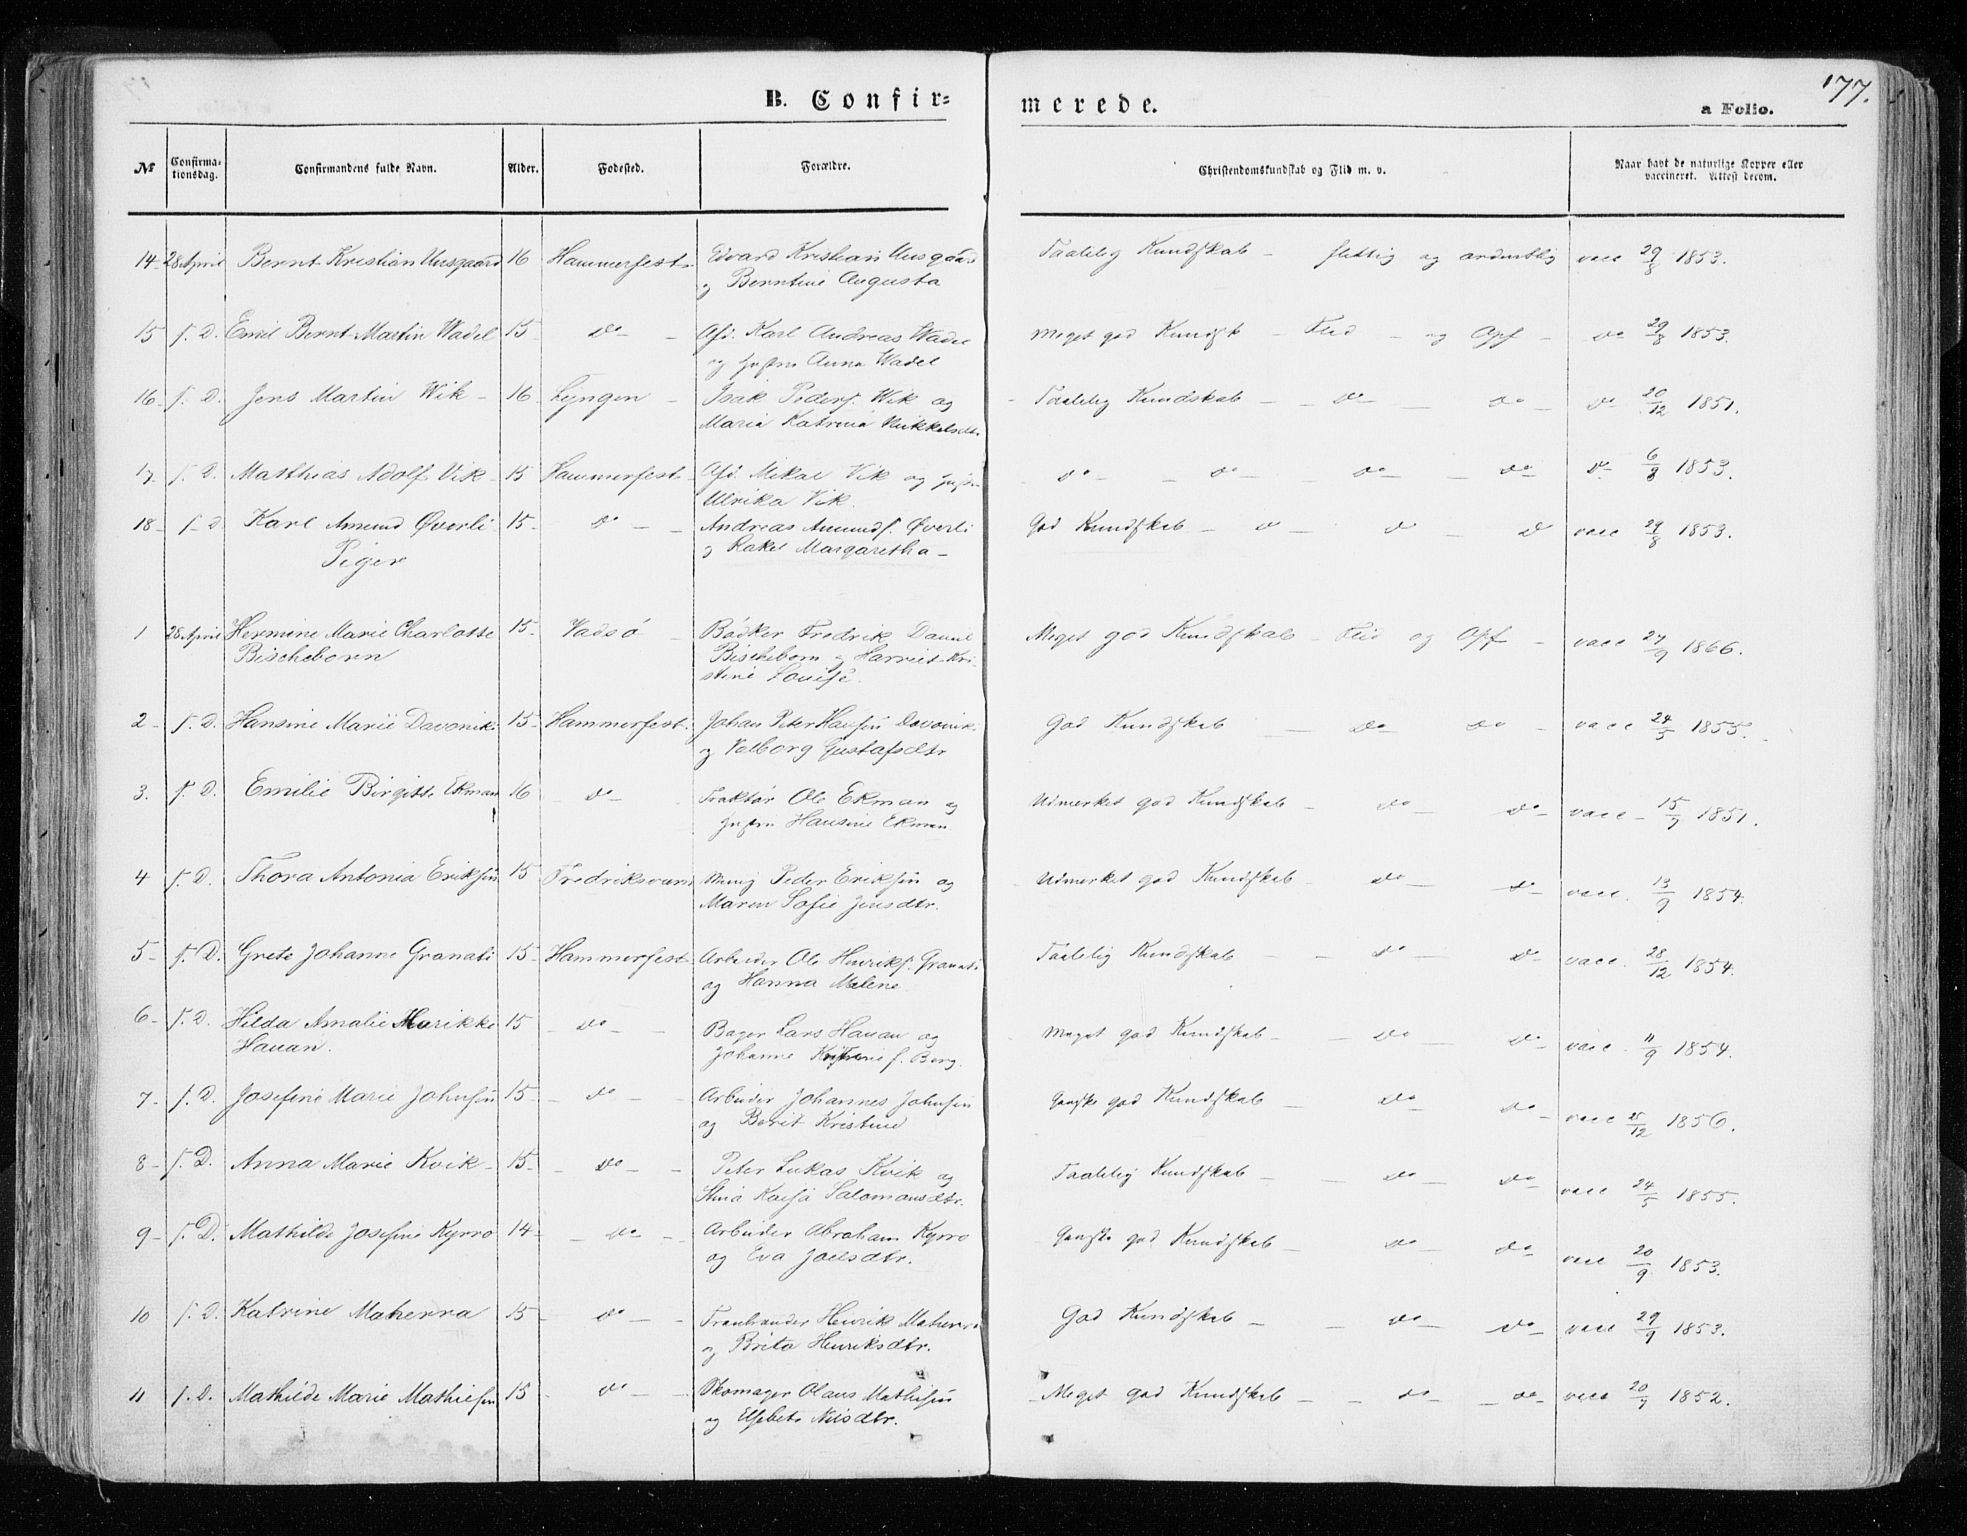 177.
B. Confir=
merede.
a Folio.
№
Confirma-
tionsdag.
Confirmandens fulde Navn.
Alder.
Fødested.
Forældre.
Christendomskundskab og Flid m. v.
Naar havt de naturlige Kopper eller
vaccineret. Attest derom.
14- 28 April Bernt Kristian Unsgaard 16 Hammerfest- Edvard Kristian Unsgaard Taalelig Kundskab - flittig og ordentlig vacc 29/8 1853.
og Berntine Augusta
15 s. D. Emil Bernt Martin Wadel 15 - do - Afd. Karl Andreas Wadel Meget god Kundsk - Flid - og Opf - do 29/8 1853.
og Hustru Anna Wadel
16- s. D. Jens Martin Wik - 16 Lyngen - Isak Peders. Wik og - Taalelig Kundskab - - do - do - do 20/12 1851.
Maria Katrina Nikkelsdtr.
17- s. D. Matthias Adolf Vik- 15 Hammerfest- Afd. Mikal Vik og Hustru - do - - do - do - do do 6/8 1853.
Ulrika Vik.
18- s. D. Karl Amund Øverli 15- do - - Andreas Amunds. Øverli God Kundskab - d - d - d vacc 29/8 1853.
og Rakel Margaretha -
Piger
1 28 April Hermine Marie Charlotte 15- Vadsø - Bødker Fredrik Daniel Meget god Kundskab - Flid og Opf - vacc 27/9 1866.
Bischeborn
Bischeborn og Harriet Kri-
stine Louise.
2- s. D. Hansine Marie Davonik 15- Hammerfest- Johan Peter Hansen Davonik God Kundskab - do do - vacc 24/5 1855.
og Valborg Gustafsdtr
3. s. D. Emilie Birgitte Ekman 16 - do - Traktør Ole Ekman og Udmerket god Kundskab - do - do- vacc - 15/7 1851.
Hustru Hansine Ekman
4 s. D. Thora Antonia Eriksen 15 Fredriksværn Peder Eriksen og - Udmerket god Kundskab - do - do - vacc. 13/9 1854.
Maren Sofie Jensdtr.
5- s. D. Grete Johanne Granati 15- Hammerfest Arbeider Ole Henriks. Granati Taalelig Kundskab - - do - do - vacc. 28/12 1854.
og Hanna Malene.
6- s. D. Hilda Amalie Marikke 15 - do - - Bager Lars Hauan og Meget god Kundskab - - do - do- vacc. 11/9 1854.
Hauan.
Johanne f. Berg.
7- s. D. Josefine Marie Johnsen 15- - do - - Arbeider Johannes Johnsen Ganske god Kundskab - do - do - vacc 25/12 1856.
og Berit Kristine
8- s. D. Anna Marie Kvik- 15- - do - - Peter Lukas Kvik og Taalelig Kundskab - - do - do - vacc 24/5 1855.
Stina Kaisa Salomonsdtr.
9- s. D. Mathilde Josefine Kyrro 14- - do - - Arbeider Abraham Kyrro Ganske god Kundskab - do - do - vacc 20/9 1853.
og Eva Joelsdtr.
10 s. D. Katrine Maherra 15- do - - Tranbrænder Henrik Maherra God Kundskab - - do - do - vacc 29/9 1853.
og Brita Henriksdtr.
11 s. D. Mathilde Marie Mathiesen 15 - do - - Skomager Olaus Mathisen - Meget god Kundskab - - do - - do - vacc 20/7 1852.
og Elsebet Nilsdtr.